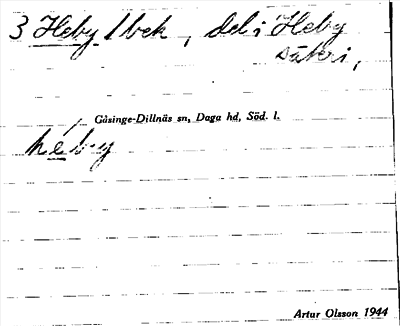 3 Heby /bek, del i Heby
säteri,
Gåsinge-Dillnäs sn, Daga hd, Söd. l.
heby
Artur Olsson 1944